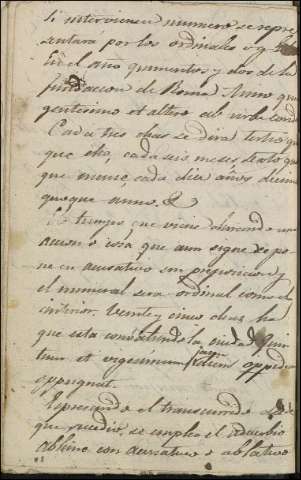 si interviene numero se repre
sentará por los ordinales v. g.
el año quinientos y dos de la
fundacion de Roma Anno quin
gentesimo et altero ab urbe condi
Cada tres dias se dira tertio quo
que die, cada seis meses sexto quo
que mense, cada diez años decimo
quoque anno, &
El tiempo que viene durando una
accion o cosa que aun sigue se po
ne en acusativo sin preposicion y
el numeral sera ordinal como el
anterior. Veinte y cinco dias ha
que esta combatiendo la ciudad Quin
tum et vigesimum jam diem oppidum
oppugnat.
Expresando el transcurrido
que sucedio, se emplea el adverbio
abhinc con acusativo o ablativo